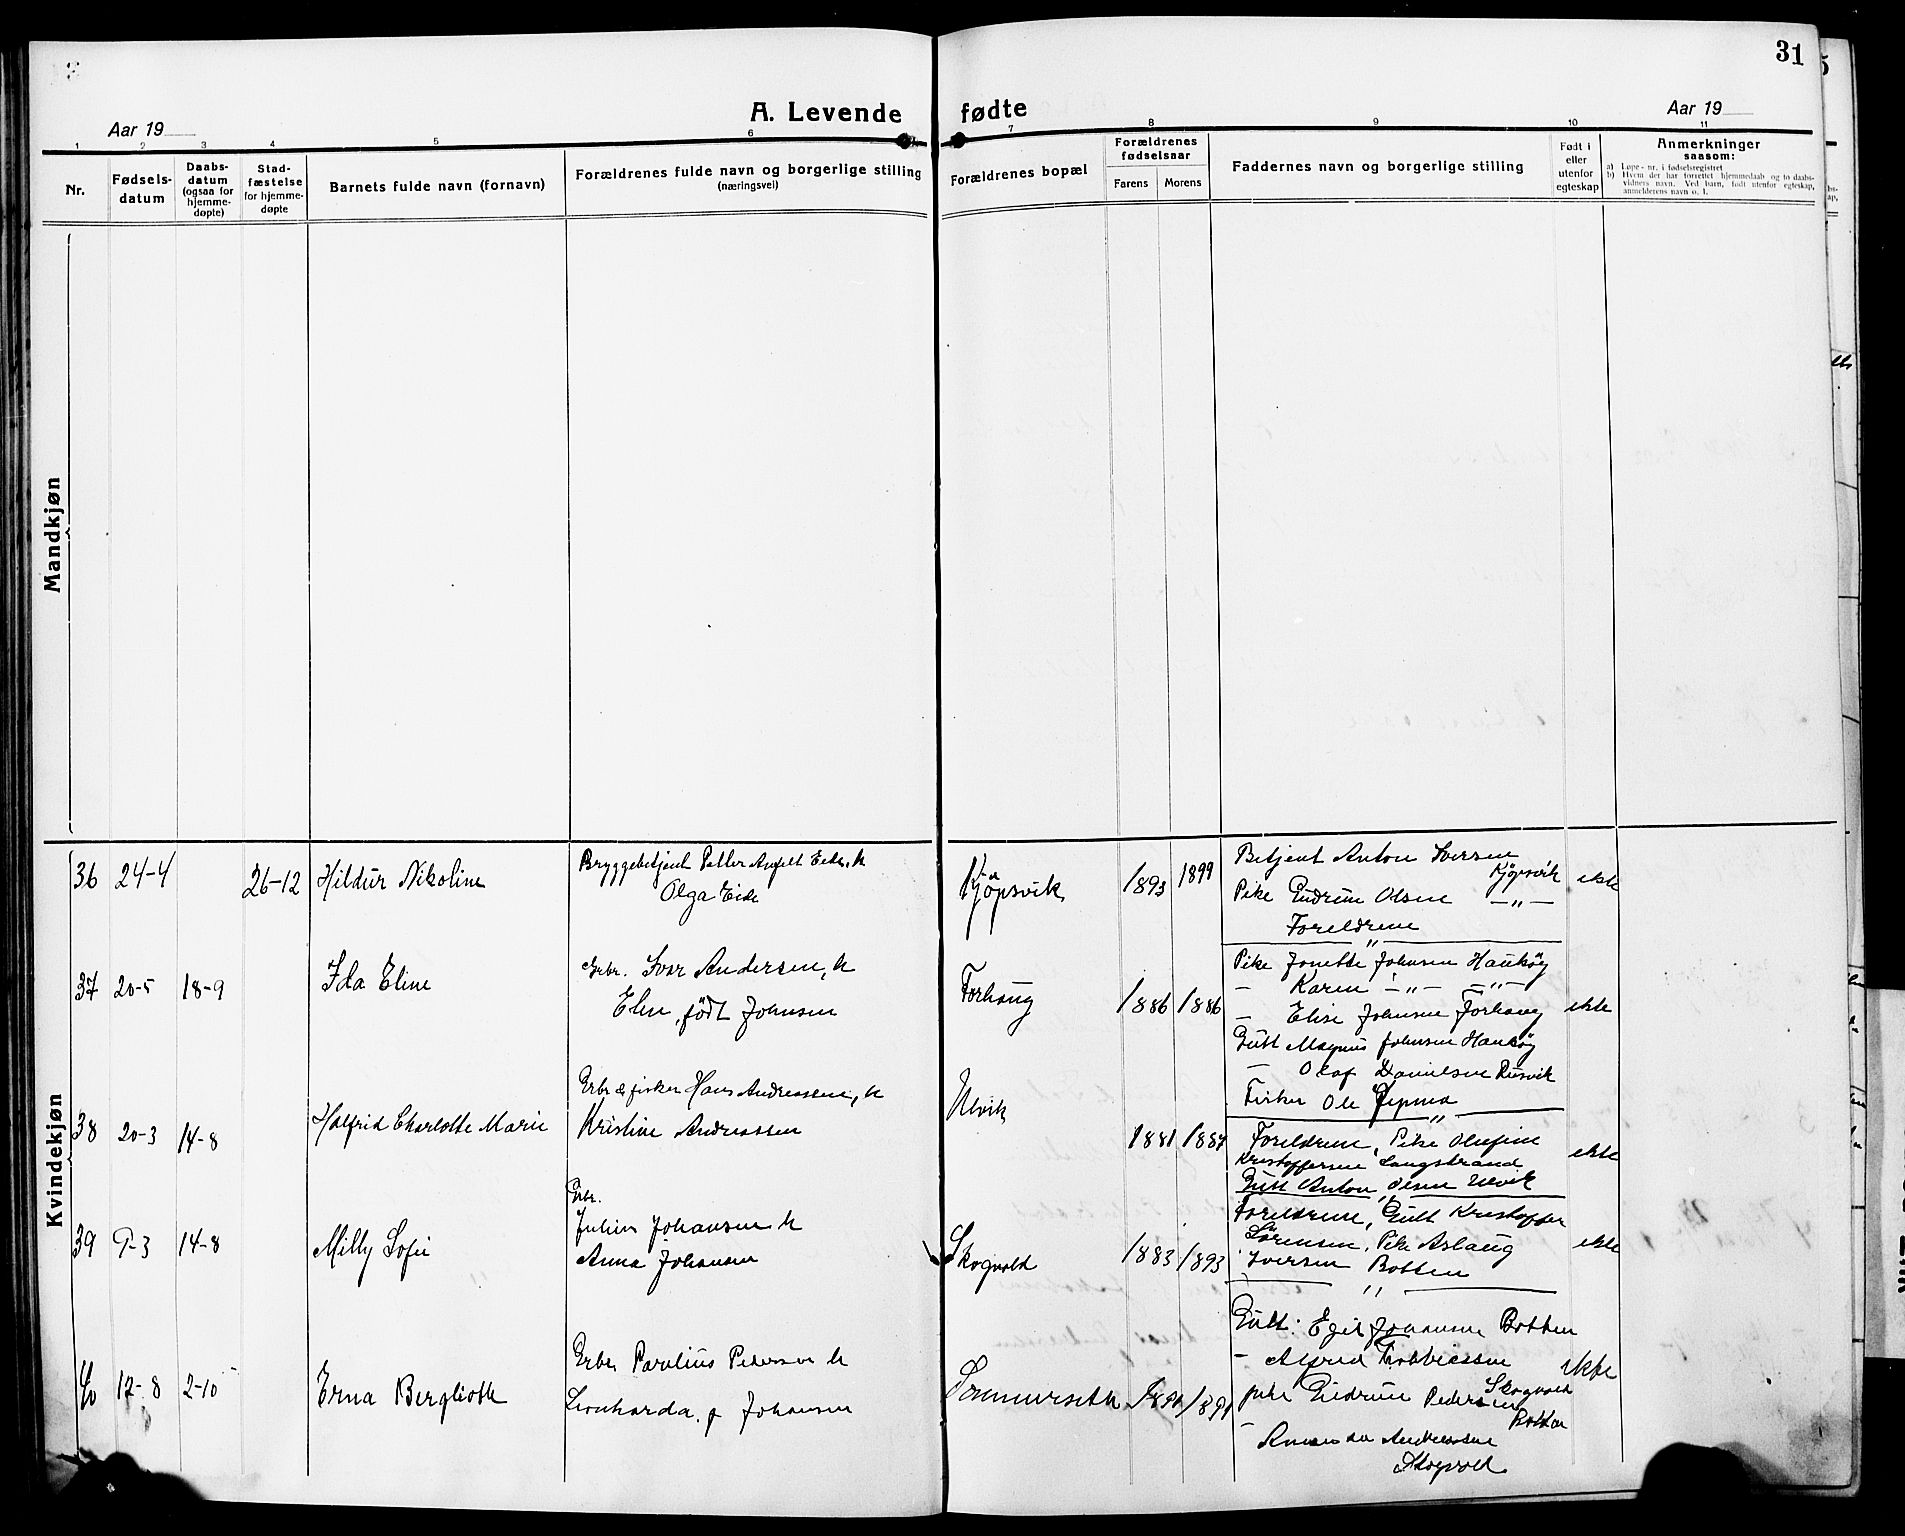 31
A. Levende fødte
Aar 19
Aar 19
1 2 3 4 5 6 7 8 9 10 11
Nr.
Fødsels-
datum
Daabs-
datum
(ogsaa for
hjemme-
døpte)
Stad-
fæstelse
for hjemme-
døpte
Barnets fulde navn (fornavn)
Forældrenes fulde navn og borgerlige stilling
(næringsvei)
Forældrenes bopæl
Forældrenes
fødselsaar
Farens
Morens
Faddernes navn og borgerlige stilling
Født i
eller
utenfor
egteskap
Anmerkninger
saasom:
a) Løpe-nr. i fødselsregistret
b) Hvem der har forrettet hjemmedaab og to daabs-
vidners navn. Ved barn, født utenfor egteskap,
anmelderens navn o. l.
Mandkjøn
Kvindekjøn
36 24-4 26-12 Hildur Nikoline
Bryggebetjent Petter Eide, h
Olga Eide
Kjøpsvik 1893 1899
Betjent Anton Iversen
Kjøpsvik
Pike Gudrun Olsen —"—
Foreldrene
ekte
37 20-5 18-9 Ida Eline
Grbr. Ivar Andersen, h
Elen, født Johnsen
Forhaug 1886 1886
Pike Jonette Johnsen Haukøy
— Karen —"— —"—
— Elise Johnsen Forhaug
Gutt Magnus Johnsen Haukøy
— Olaf Danielsen Rusvik
Fisker Ole
ekte
38 20-3 14-8 Halfrid Charlotte Marie
Grbr & fisker Hans Andreassen, h
Kristine Andreassen
Ulvik
1881 1887
Foreldrene, Pike Olufine
Kristoffersen Langstrand
Gutt Anton Olsen Ulvik
ekte
39 9-3 14-8 Milly Sofie
Grbr.
Julius Johansen h
Anna Johansen
Skogvold 1883 1893
Foreldrene, Gutt Kristoffer
Sörensen, Pike Aslaug
Iversen Botten
ekte
40 17-8 2-10 Erna Bergliotte
Grbr Parelius Pedersen h
Leonharda, f Johansen
Sommerseth 1891
Gutt: Egil Johansen Botten
— Alfred
pike Gudrun Pedersen
Skogvold
Botten
— Amanda Andreassen
Skogvold
ekte